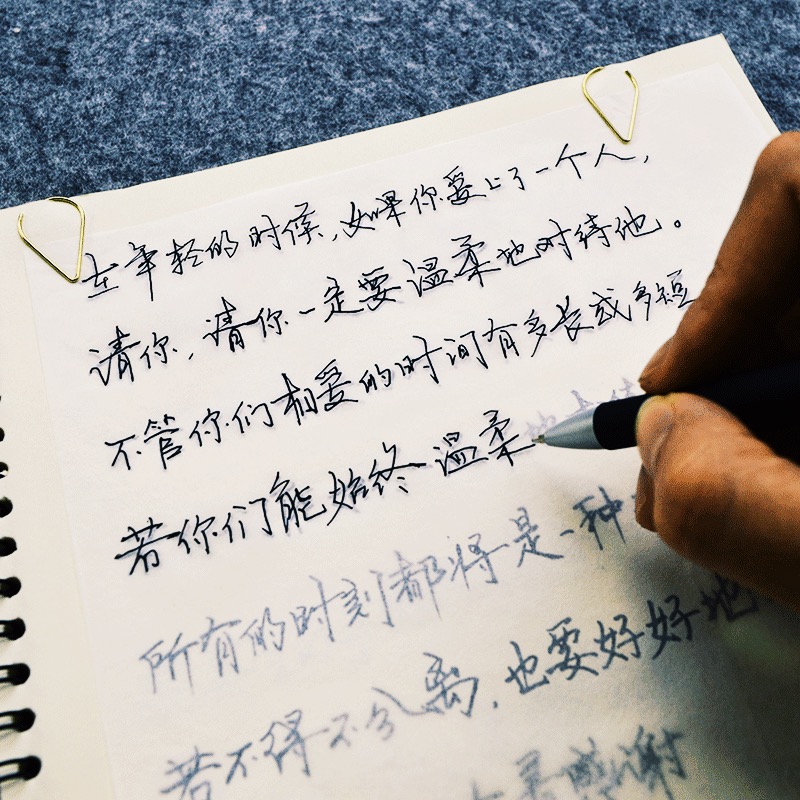 在年轻的时候,如果你爱上了一个人,
请你,请你一定要温柔地对待他。
不管你们相爱的时间有多长或多短
若你们能始终温柔地
所有的时刻都将是一种
若不得不分离,也要好好地
感谢